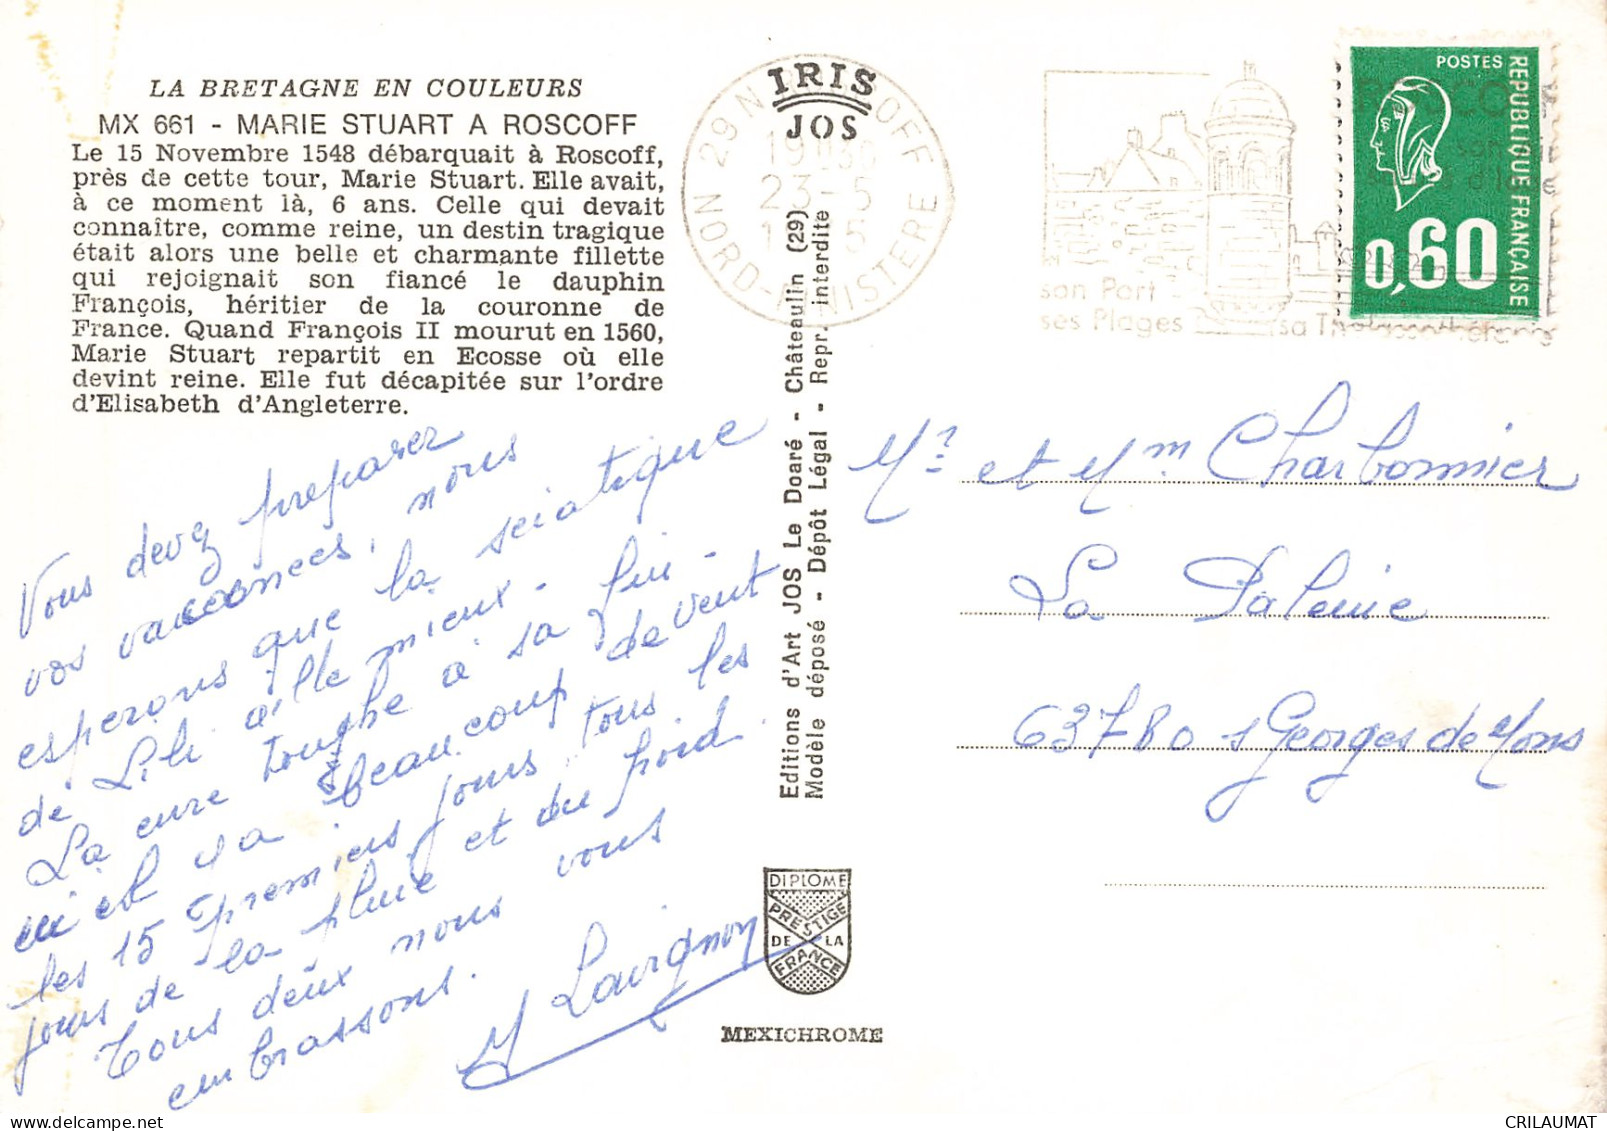 LA BRETAGNE EN COULEURS
MX 661 - MARIE STUART A ROSCOFF
Le 15 Novembre 1548 débarquait à Roscoff,
près de cette tour, Marie Stuart. Elle avait,
à ce moment là, 6 ans. Celle qui devait
connaître, comme reine, un destin tragique
était alors une belle et charmante fillette
qui rejoignait son fiancé le dauphin
François, héritier de la couronne de
France. Quand François II mourut en 1560,
Marie Stuart repartit en Ecosse où elle
devint reine. Elle fut décapitée sur l'ordre
d'Elisabeth d'Angleterre.
Vous devez preparer
vos vacances, nous
esperons que la sciatique
de Lili aille mieux.
La cure touche à sa fin.
il y a beaucoup de vent
les 15 premiers jours, tous les
jours de la pluie et du froid.
Tous deux nous vous
embrassons.
Lavignon
IRIS
JOS
29 N ROSCOFF
23-5
NORD-FINISTERE
Editions d'Art JOS Le Doaré - Châteaulin (29)
Modèle déposé - Dépôt Légal - Repr. interdite
DIPLOME
PRESTIGE
DE LA
FRANCE
MEXICHROME
son Port
ses Plages
sa Thalassothérapie
POSTES
REPUBLIQUE FRANÇAISE
0,60
Mr et Mm Charbonnier
La
63780 s Georges de Mons
CRILAUMAT